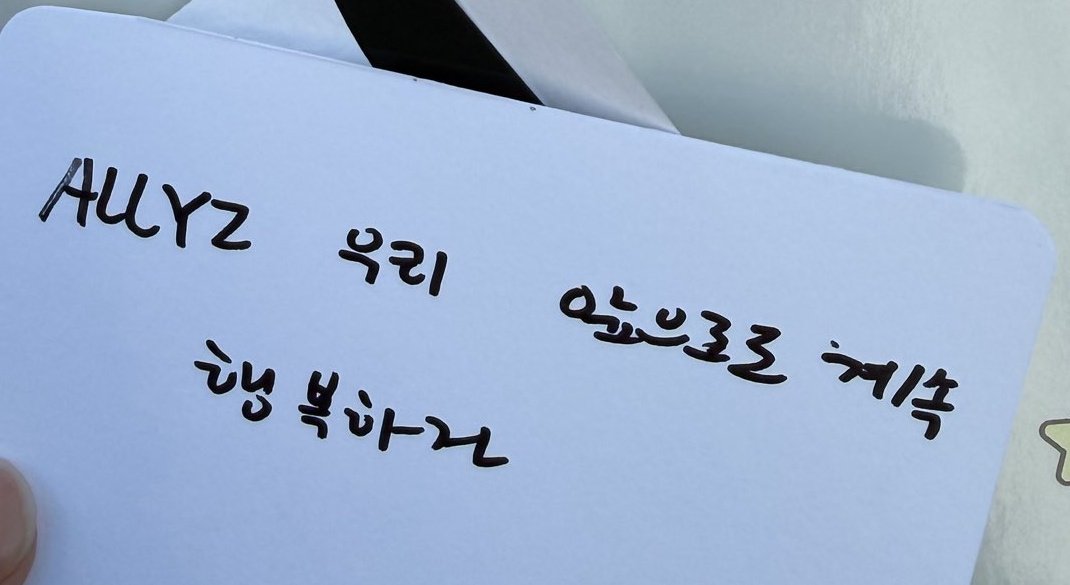 ALLYZ 우리 앞으로도 계속
행복하자